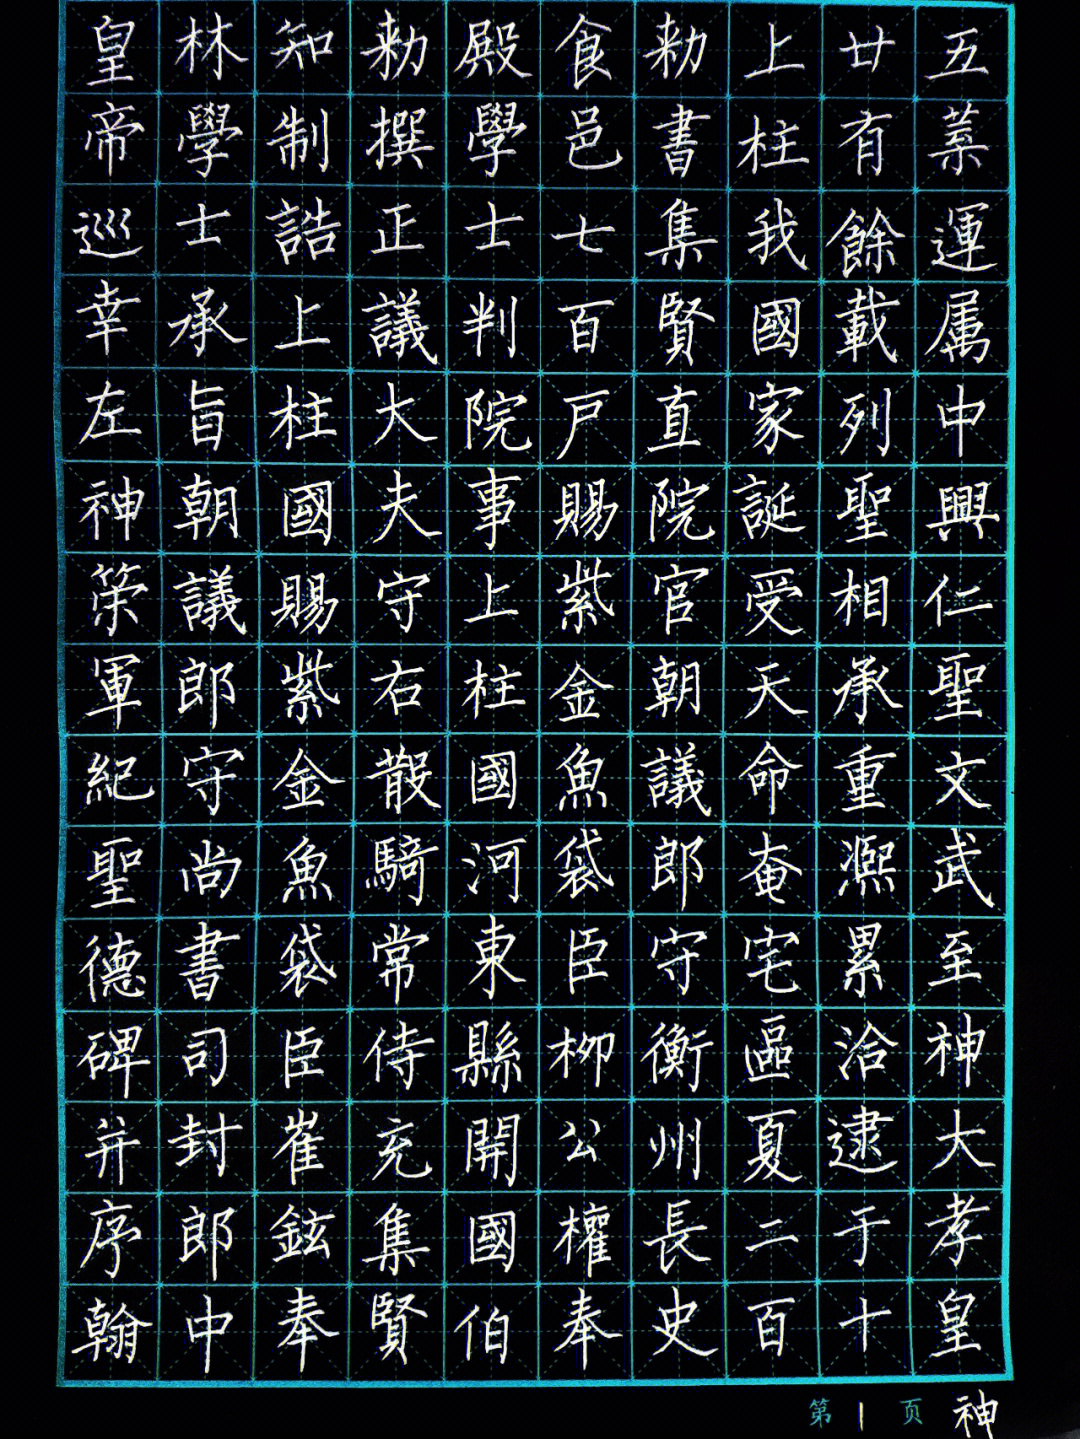 皇帝巡幸左神策軍紀聖德碑并序翰
林學士承旨朝議郎守尚書司封郎中
知制誥上柱國賜紫金魚袋臣崔鉉奉
勑撰正議大夫守右散騎常侍充集賢
殿學士判院事上柱國河東縣開國伯
食邑七百戸賜紫金魚袋臣柳公權奉
勑書集賢直院官朝議郎守衡州長史
上柱我國家誕受天命奄宅區夏二百
廿有餘載列聖相承重熙累洽逮于十
五葉運属中興仁聖文武至神大孝皇
第1页 神